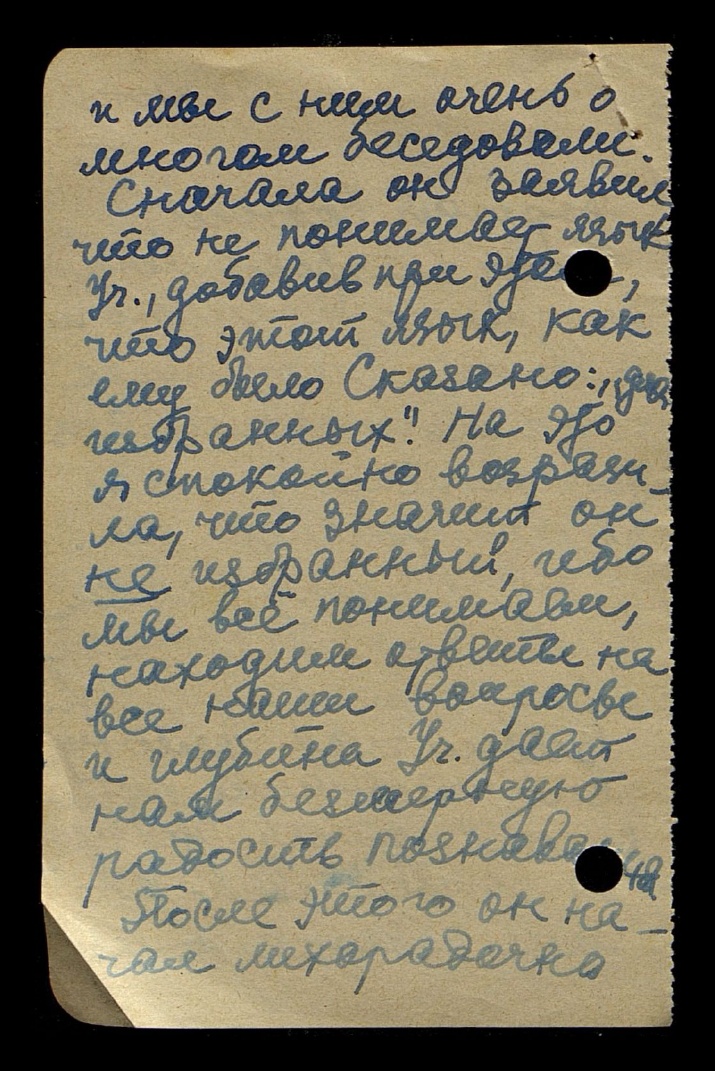 и мы с ним очень о
многом беседовали.
Сначала он заявил
что не понимает язык
Уч., добавив при этом,
что этот язык, как
ему было Сказано: „для
избранных“! На это
я спокойно возрази-
ла, что значит он
не избранный, ибо
мы всё понимаем,
находим ответы на
все наши вопросы
и глубина Уч. даёт
нам безмерную
радость познавания
После этого он на-
чал лихорадочно